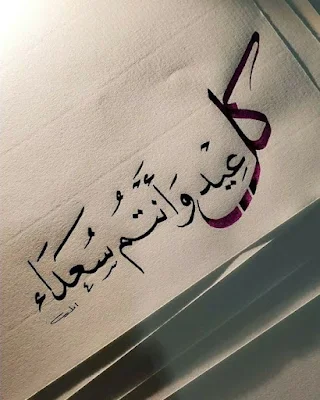 كل عِيْد وَأَنتُم سُعَدَاء